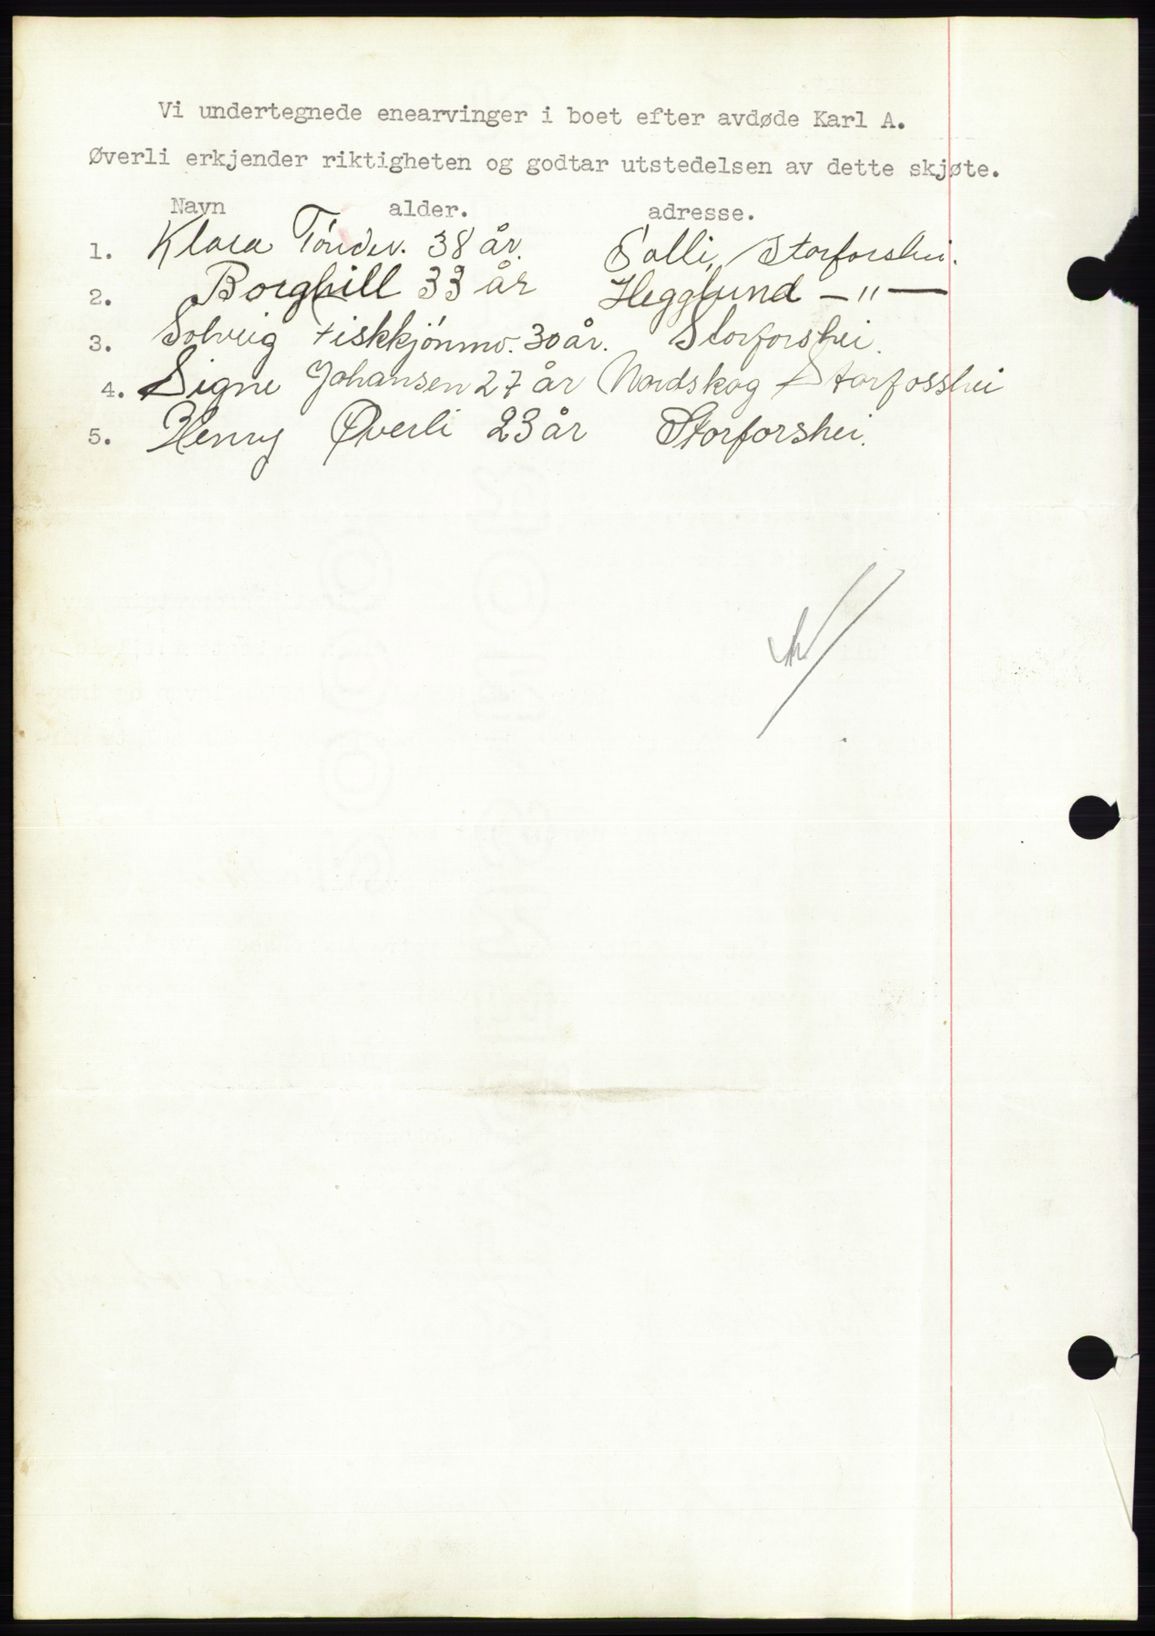 Vi undertegnede enearvinger i boet efter avdøde Karl A.
Øverli erkjender riktigheten og godtar utstedelsen av dette skjøte.
Navn alder. adresse.
1. Klara Tønder. 38 år. Storforshei.
2. Borghill 33 år Hegglund —"—
3. Solveig Fiskkjønmo. 30 år. Storforshei.
4. Signe Johansen 27 år Nordskog Storfosshei
5. Henry Øverli 23 år Storforshei.